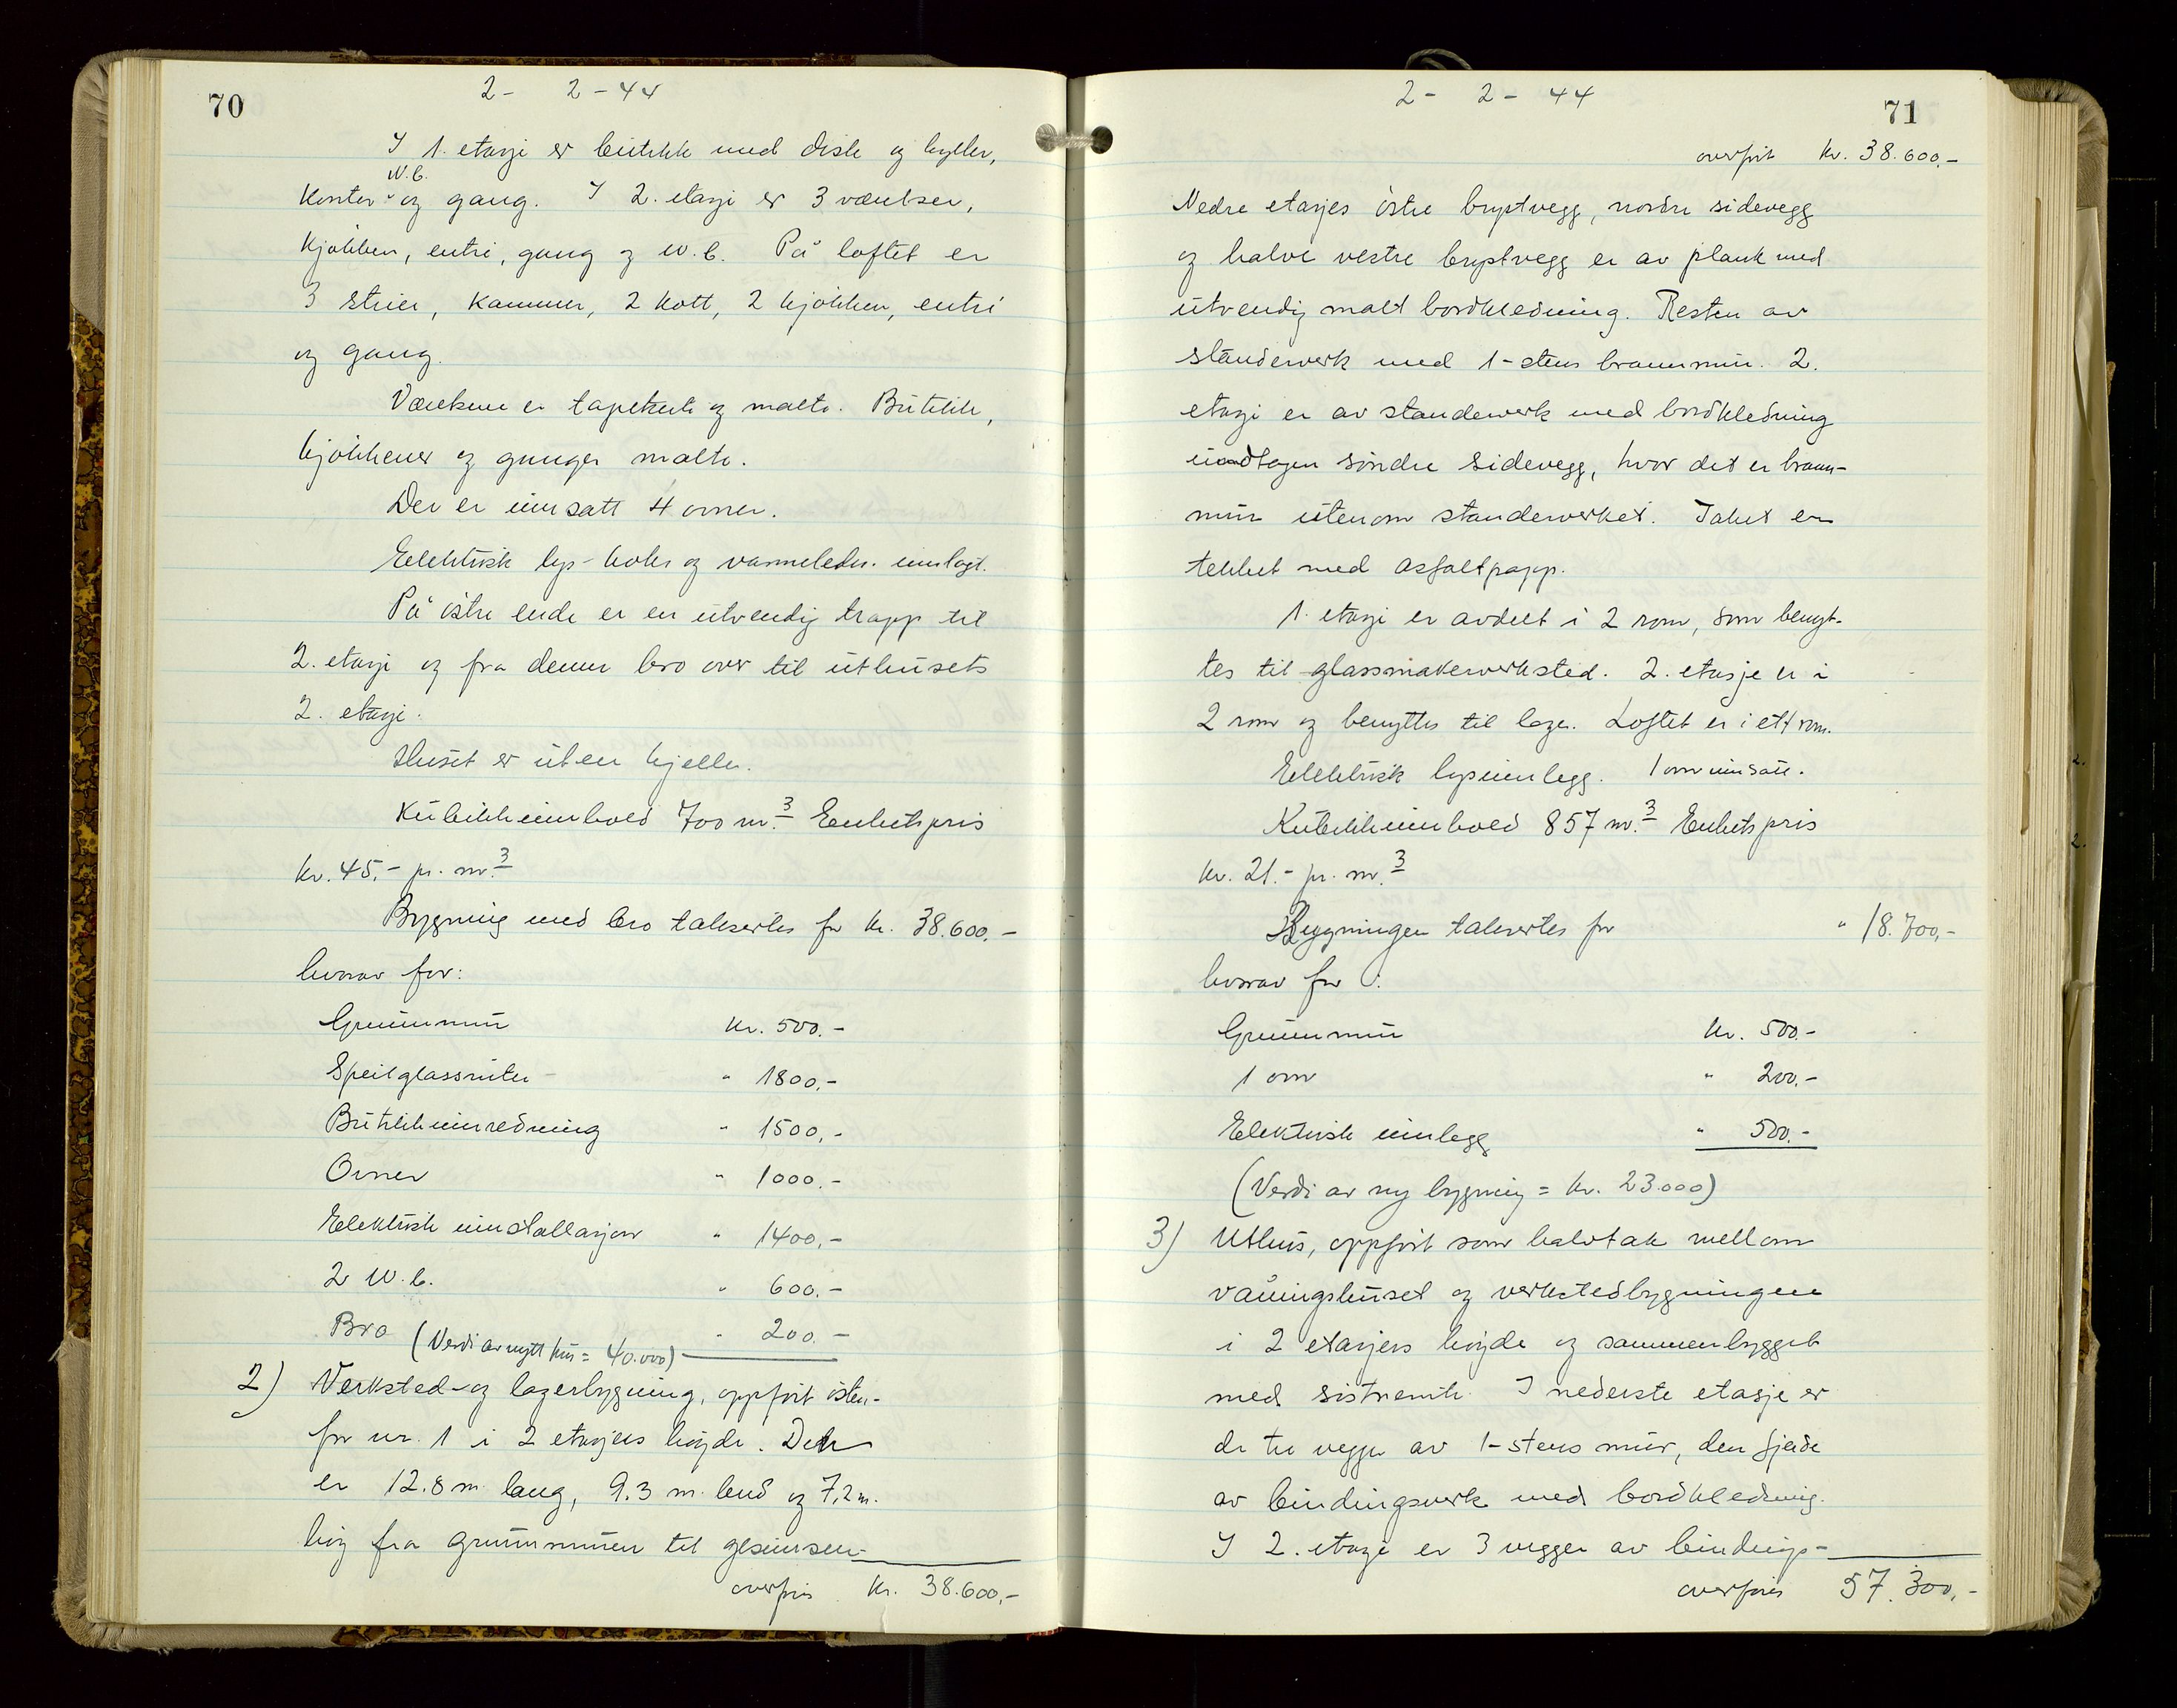 70
2- 2-44
I 1. etasje er butikk med disk og hyller,
W.C.
kontor og gang. I 2. etasje er 3 værelser,
kjøkken, entri, gang og W.C. På loftet er
3 stuer, kammer, 2 kott, 2 kjøkken, entri
og gang.
Værelsene er tapetserte og malte. Butikk,
kjøkkener og ganger malte.
Der er innsatt 4 ovner.
Elektrisk lys- koke og varmeledn. innlagt.
På østre ende er en utvendig trapp til
2. etasje og fra denne bro over til uthusets
2. etasje.
Huset er uten kjeller.
Kubikkinnhold 700 m.3 Enhetspris
kr. 45.- pr. m.3
Bygning med bro takseres for kr. 38.600.-
hvorav for:
Grunnmur kr. 500.-
Speilglassruter " 1800.-
Butikkinnredning " 1500.-
Ovner " 1000.-
Elektrisk innstallasjon " 1400.-
2 W.C. " 600.-
Bro (Verdi av nytt hus = 40.000) " 200.-
2) Verksted- og lagerbygning, oppført østen-
for nr. 1 i 2 etasjers høyde. Den
er 12.8 m. lang, 9.3 m. bred og 7,2 m.
høy fra grunnmuren til gesimsen
overføres kr. 38.600.-
2- 2- 44
71
overført kr. 38.600.-
Nedre etasjes østre brystvegg, nordre sidevegg
og halve vestre brystvegg er av plank med
utvendig malt bordkledning. Resten av
standerverk med 1-stens brannmur. 2.
etasje er av standerverk med bordkledning
undtagen søndre sidevegg, hvor det er brann-
mur utenom standerverket. Taket er
tekket med asfaltpapp.
1. etasje er avdelt i 2 rom, som benyt-
tes til glassmakerverksted. 2. etasje er i
2 rom og benyttes til lager. Loftet er i ett rom.
Elektrisk lysinnlegg. 1 ovn innsatt.
Kubikkinnhold 857 m.3 Enhetspris
kr. 21.- pr. m.3
Bygningen takseres for " 18.700.-
hvorav for:
Grunnmur kr. 500.-
1 ovn " 200.-
Elektrisk innlegg " 500.-
(Verdi av ny bygning = kr. 23.000)
3) Uthus, oppført som halvtak mellom
våningshuset og verkstedbygningen
i 2 etasjers høyde og sammenbygget
med sistnemte. I nederste etasje er
de tre vegger av 1-stens mur, den fjerde
av bindingsverk med bordkledning.
I 2. etasje er 3 vegger av bindings-
overføres 57.300.-